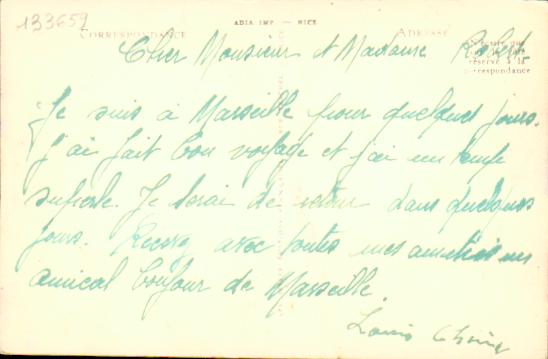 133659
ADIA IMP. — NICE
CORRESPONDANCE
ADRESSE
réservé à la
correspondance
Cher Monsieur et Madame Robert
Je suis à Marseille pour quelques jours.
J'ai fait bon voyage et j'ai un temps
superbe. Je serai de retour dans quelques
jours. Recevez avec toutes mes amitiés un
amical bonjour de Marseille.
Louis